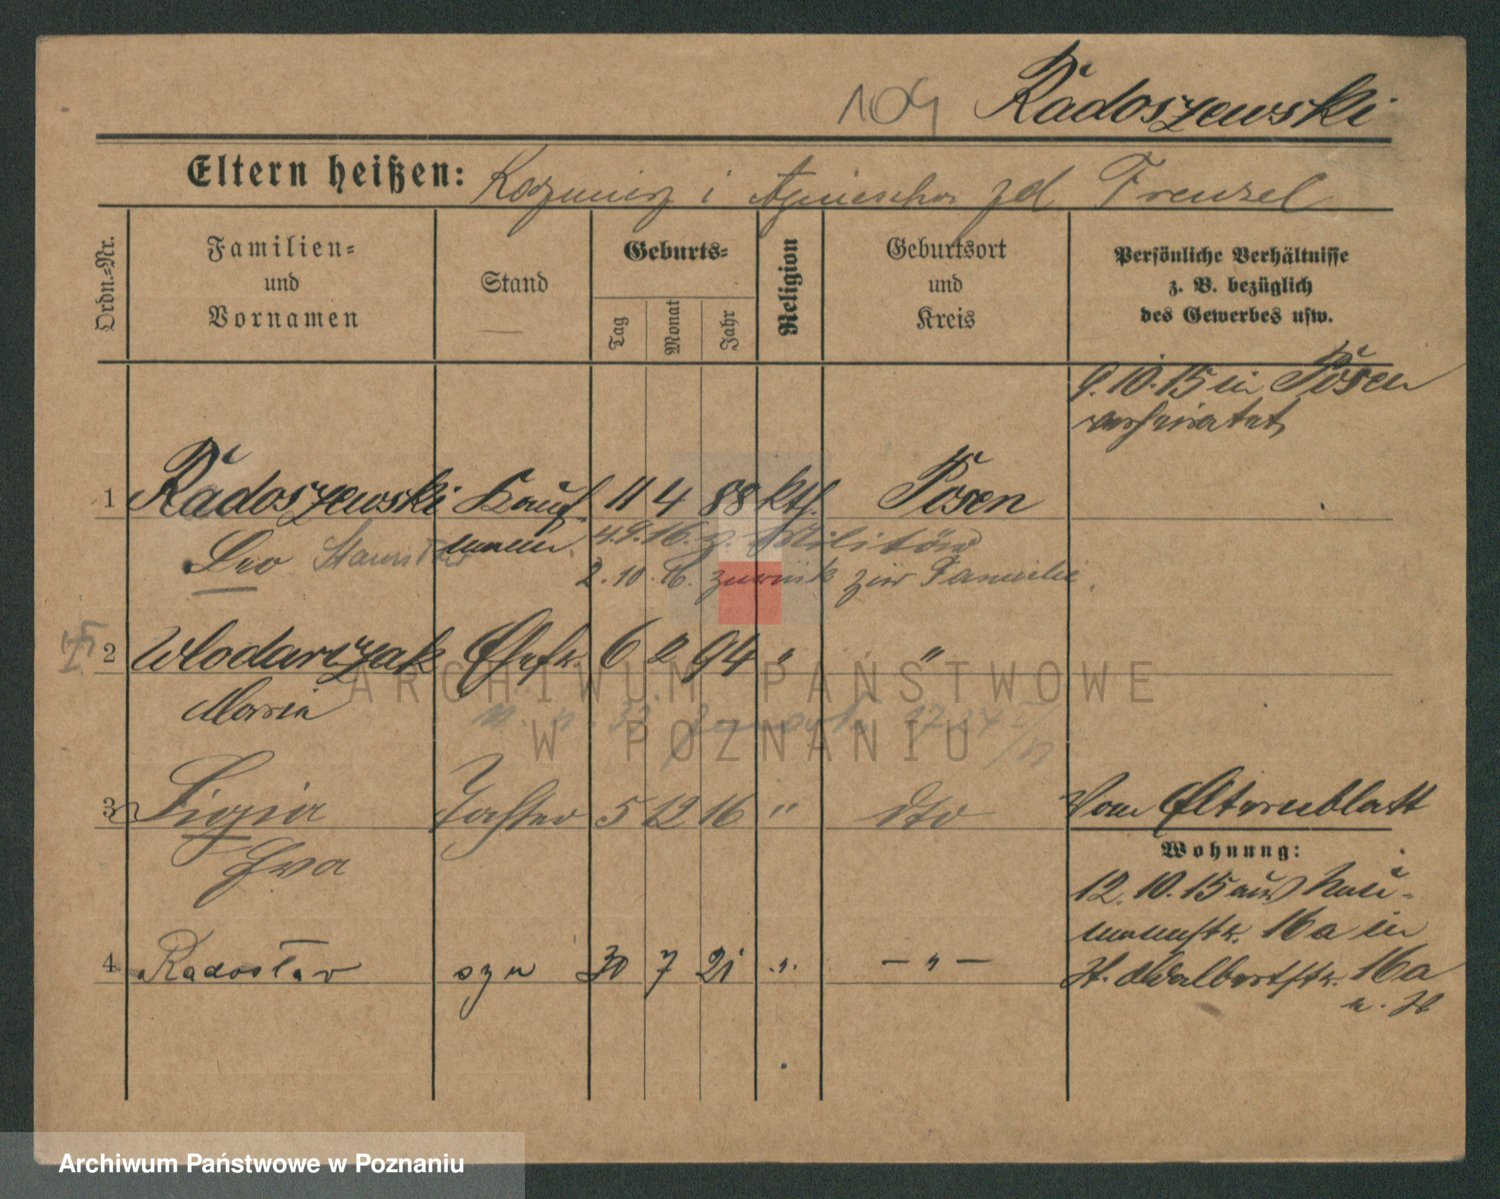 109 Radoszewski
Eltern heißen: Kazimierz i Agnieszka zd Frenzel
Ordn.=Nr.
Familien=
und
Vornamen
Stand
Geburts=
Tag
Monat
Jahr
Religion
Geburtsort
und
Kreis
Persönliche Verhältnisse
z. B. bezüglich
des Gewerbes usw.
9.10.15 in Posen
verheiratet
1 Radoszewski Kauf- 11 4 88 kth. Posen
Leo mann 4.9.16. z. Militär
2.10.16. zurück zur Familie.
2 Wlodarczak Ehefr. 6 2 94 " "
Maria
3 Ligia Tochter 5 12 16 " dto
Eva
Vom Elternblatt
Wohnung:
12.10.15 aus Nau-
mannstr. 16a in
St. Adalbertstr. 16a
4 Radosław syn 30 7 21 " - " -
ARCHIWUM PAŃSTWOWE
W POZNANIU
Archiwum Państwowe w Poznaniu